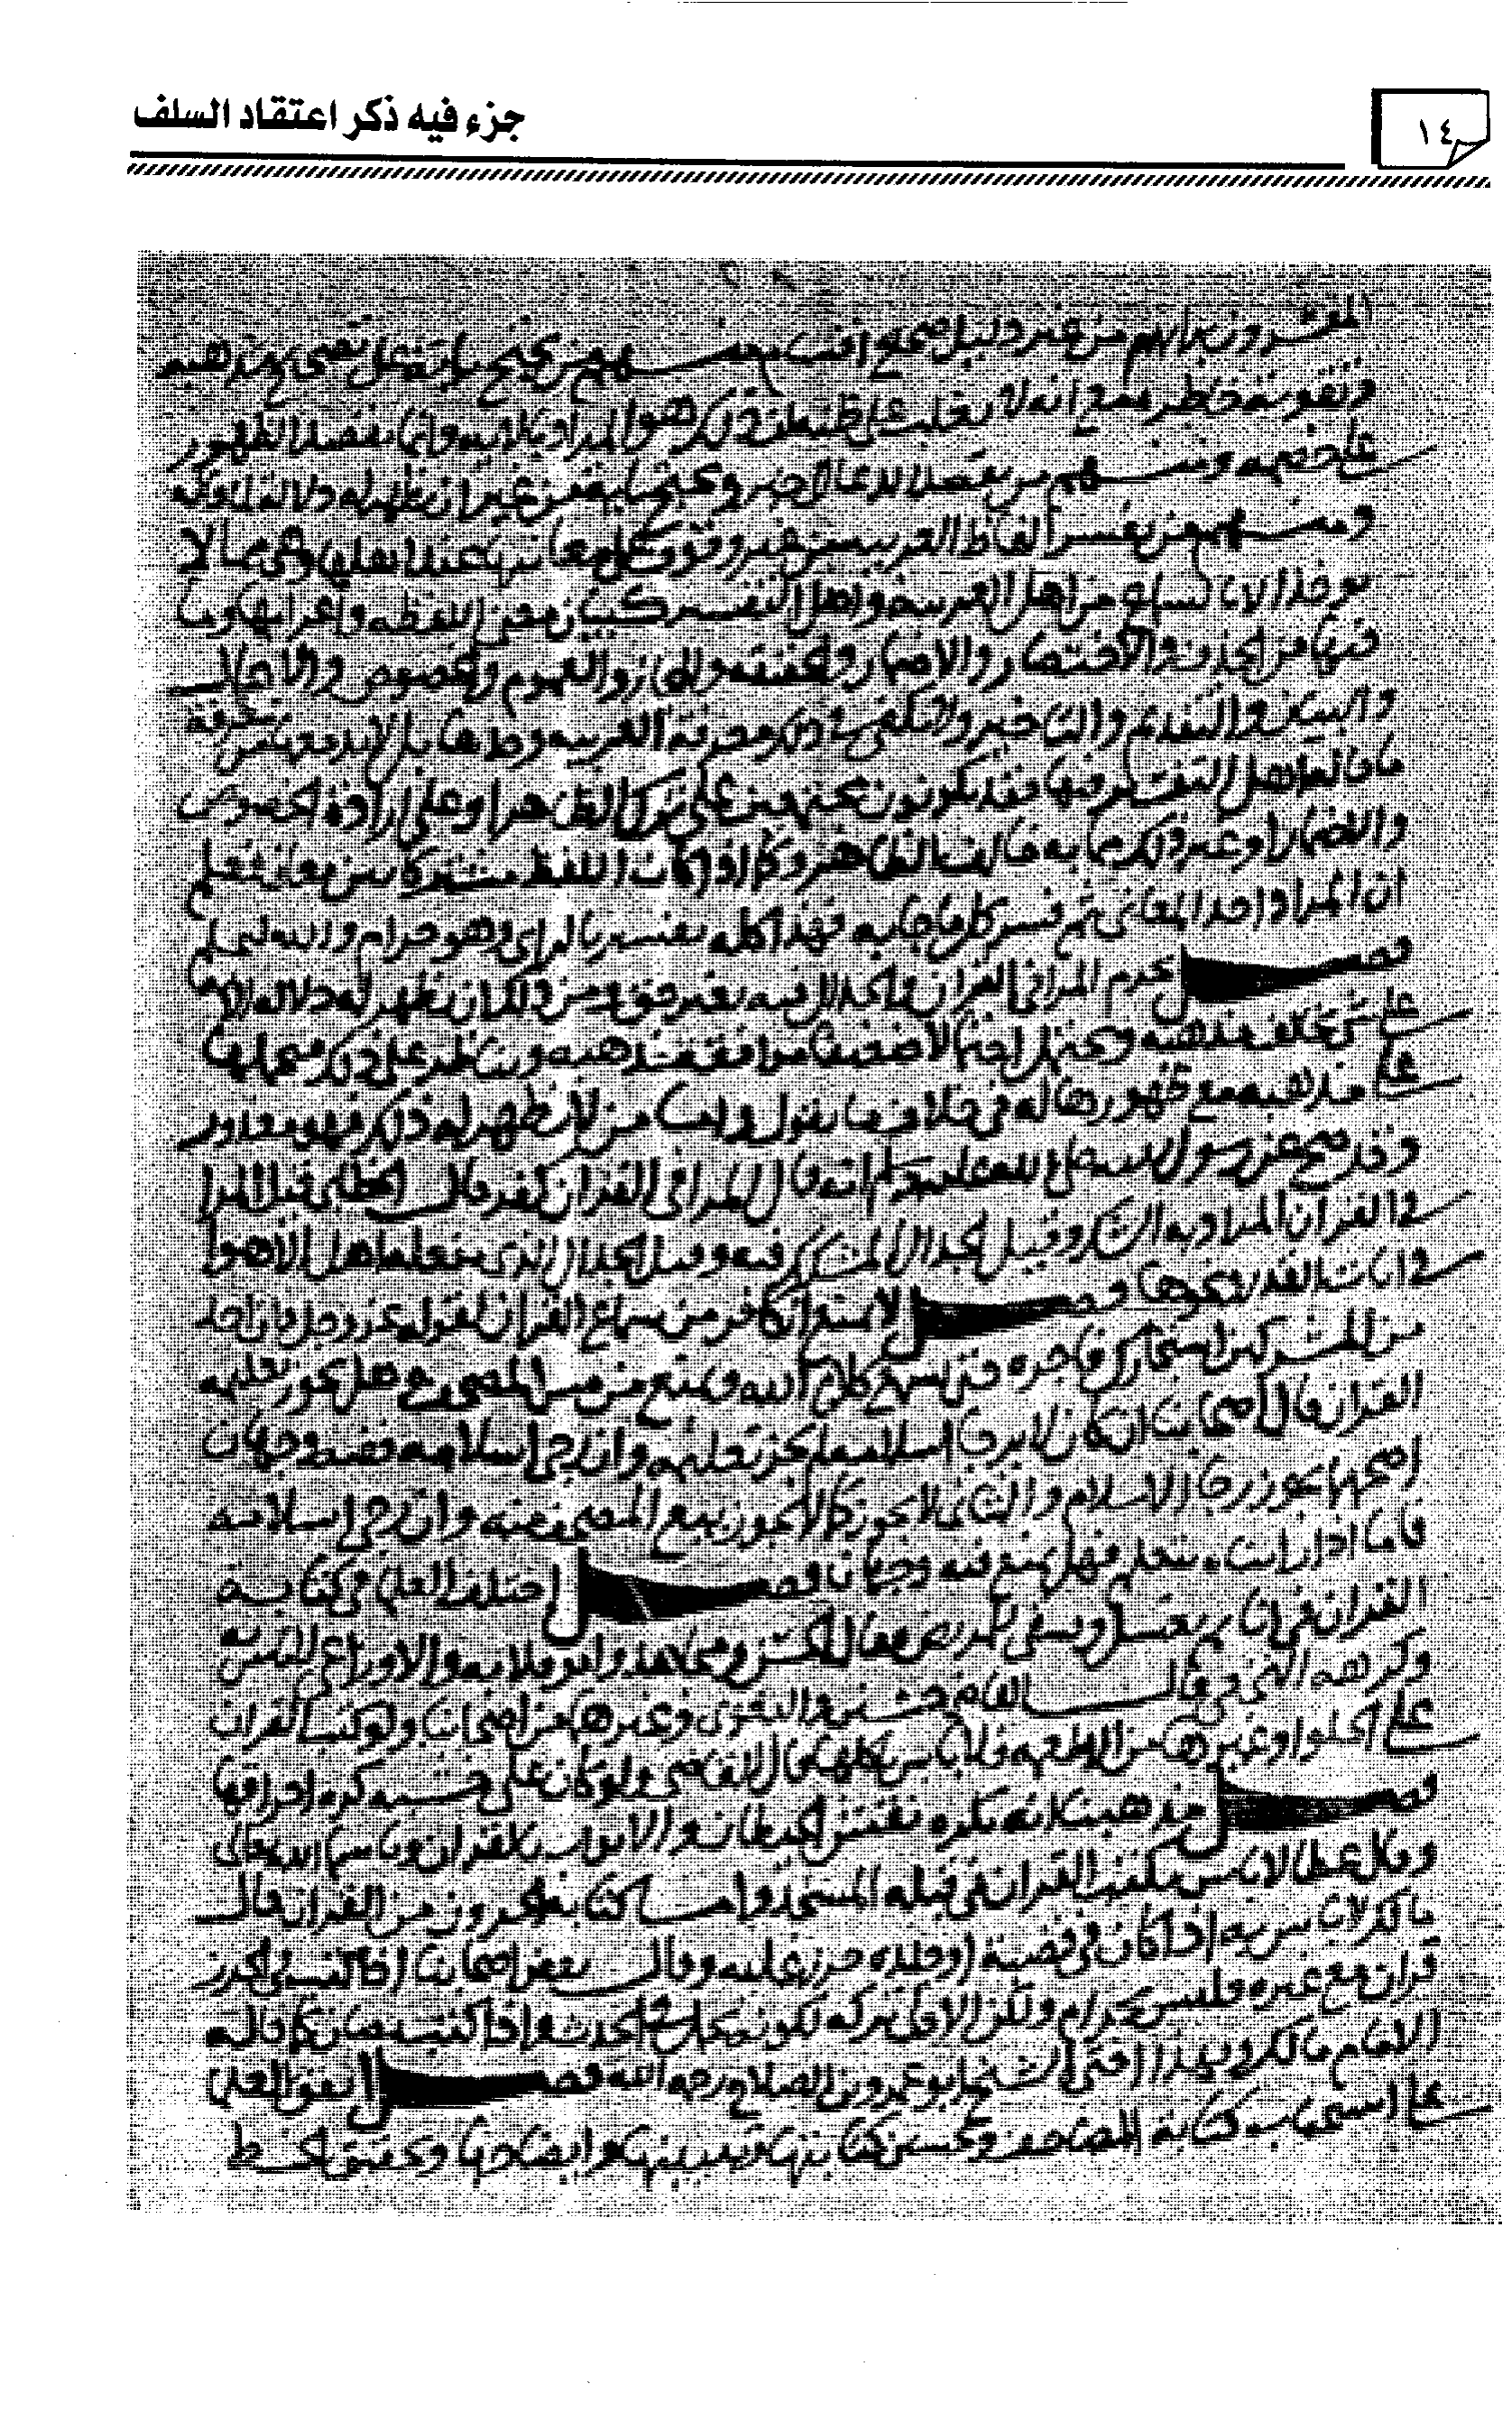 جزء فيه ذكر اعتقاد السلف
١٤
المفسرون برايهم من غير دليل صحيح اقسام منهم من يحتج باية على تصحيح مذهبه
وتقوية خاطره مع انه لا يغلب على ظنه ان ذلك هو المراد بالاية وانما يقصد الظهور
على خصمه ومنهم من يقصد الدعا الى خير ويحتج باية من غير ان يظهر له دلالة لما قاله
ومنهم من يفسر الفاظ العربية من غير وقوف على معانيها عند اهلها وهي مما لا
يوخذ الا بالسماع من اهل العربية واهل التفسير كبيان معنى اللفظه واعرابها وما
فيها من الحذف والاختصار والاضمار والحقيقه والمجاز والعموم والخصوص والاجمال
والبيان والتقديم والتاخير ولا يكفي في ذلك معرفة العربيه وحدها بل لابد معها من معرفة
ما قاله اهل التفسير فيها فقد يكونون مجتمعين على ترك الظاهر او على ارادة الخصوص
والاضمار او غير ذلك مما يه خالف الظاهر وكما اذا كان اللفظ مشتركا بين معان فعلم
ان المراد احد المعاني ثم فسر كل ما جا به فهذا كله تفسير بالراي وهو حرام والله اعلم
فصل يحرم المرا في القران والجدال فيه بغير حق ومن ذلك ان يظهر له دلالة الاية
على شي يخالف مذهبه ويحتمل احتمالا ضعيفا موافقة مذهبه ويناظر على ذلك ويحملها
على مذهبه مع ظهورها له في خلاف ما يقول واما من لا يظهر له ذلك فهو معذور
وقد صح عن رسول الله صلى الله عليه وسلم انه قال المرا في القران كفر قال الخطابي قيل المرا
في القران المراد به الشك وقيل الجدال المشكك فيه وقيل الجدال الذي يفعله اهل الاهوا
في ايات القدر ونحوها فصل لا يمنع الكافر من سماع القران لقوله عز وجل وان احد
من المشركين استجارك فاجره حتى يسمع كلام الله ويمنع من مس المصحف وهل يجوز تعليمه
القران قال اصحابنا ان كان لا يرجا اسلامه لم يجز تعليمه وان رجي اسلامه ففيه وجهان
اصحهما يجوز رجا الاسلام والثاني لا يجوز كما لا يجوز بيع المصحف منه وان رجي اسلامه
فاما اذا رايناه يتعلم فهل يمنع فيه وجهان فصل اختلف العلما في كتابة
القران في انا ثم يغسل ويسقى المريض فقال الحسن ومجاهد وابو قلابه والاوزاعي لا باس به
وكرهه النخعي وقال القاضي حسين والبغوي وغيرهما من اصحابنا ولو كتب القران
على الحلوا او غيرها من الاطعمه فلا باس باكلها قال القاضي ولو كان على خشبه كره احراقها
فصل مذهبنا انه يكره نقش الحيطان والابواب بالقران وباسما الله تعالى
وقال عطا لا باس بكتب القران في قبلة المسجد واما كتابة الحروز من القران فقال
مالك لا باس به اذا كان في قصبة او جلد وخرز عليه وقال بعض اصحابنا اذا كتب في الحرز
قران مع غيره فليس بحرام ولكن الاولى تركه لكونه يحمل في حال الحدث واذا كتب يصان كما قاله
الامام مالك وبهذا افتى الشيخ ابو عمرو بن الصلاح رحمه الله فصل اتفق العلما
على استحباب كتابة المصاحف وتحسين كتابتها وتبيينها وايضاحها وتحقيق الخط